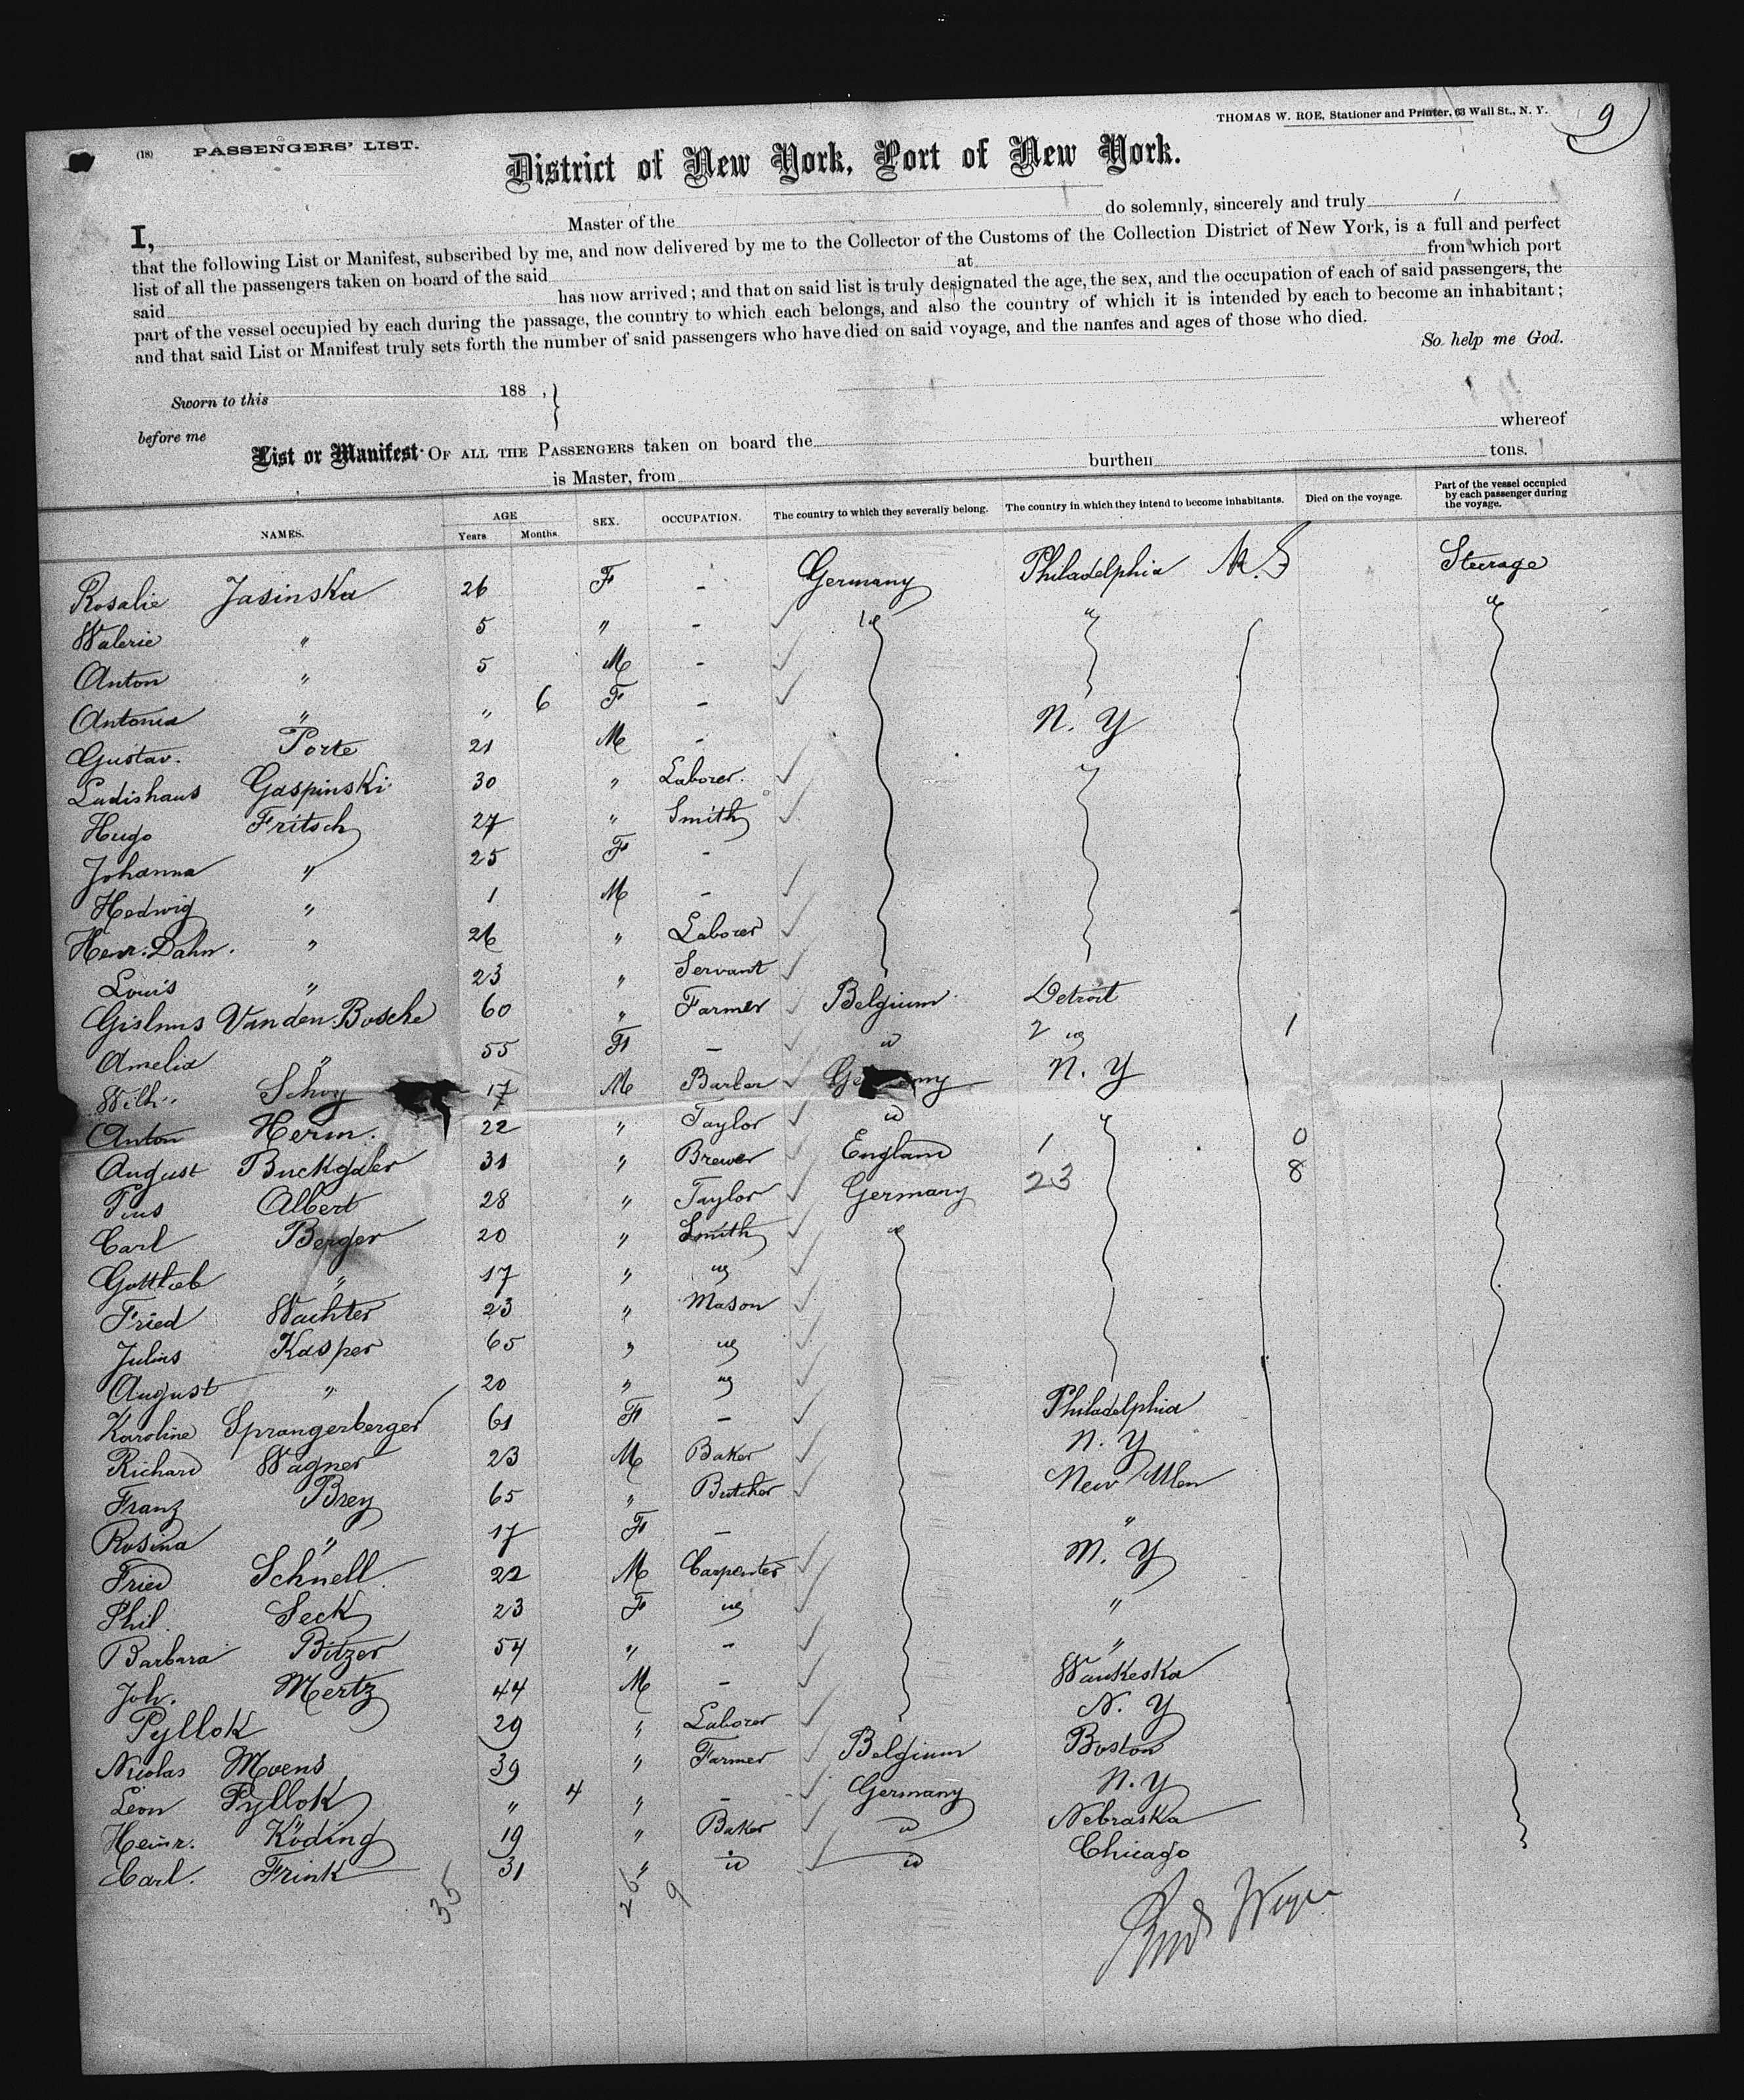 (18) PASSENGERS' LIST.
THOMAS W. ROE, Stationer and Printer, 63 Wall St., N. Y.
9
District of New York, Port of New York.
I, Master of the do solemnly, sincerely and truly
that the following List or Manifest, subscribed by me, and now delivered by me to the Collector of the Customs of the Collection District of New York, is a full and perfect
list of all the passengers taken on board of the said at from which port
said has now arrived; and that on said list is truly designated the age, the sex, and the occupation of each of said passengers, the
part of the vessel occupied by each during the passage, the country to which each belongs, and also the country of which it is intended by each to become an inhabitant;
and that said List or Manifest truly sets forth the number of said passengers who have died on said voyage, and the names and ages of those who died.
So help me God.
Sworn to this 188 ,
before me
List or Manifest OF ALL THE PASSENGERS taken on board the whereof
is Master, from burthen tons.
NAMES. AGE Years Months. SEX. OCCUPATION. The country to which they severally belong. The country in which they intend to become inhabitants. Died on the voyage. Part of the vessel occupied by each passenger during the voyage.
Rosalie Jasinska 26 F - Germany Philadelphia Steerage
Walerie " 5 " - " "
Anton " 5 M -
Antonia " " 6 F -
Gustav. Porte 21 M - N. Y
Ladishaus Gaspinski 30 " Laborer.
Hugo Fritsch 27 " Smith
Johanna " 25 F -
Hedwig " 1 M -
Henr. Dahn. " 26 " Laborer
Louis " 23 " Servant
Gislnus Van den Bosche 60 " Farmer Belgium Detroit
Amelia " 55 F - " 2 " 1
Wilh. Schoy 17 M Barber Germany N. Y
Anton Herm. 22 " Taylor "
August Buckgaler 31 " Brewer England 1 0
Pius Albert 28 " Taylor Germany 23 8
Carl Berger 20 " Smith "
Gottlieb " 17 " "
Fried Wachter 23 " Mason
Julius Kasper 65 " "
August " 20 " "
Karoline Sprangerberger 61 F - Philadelphia
Richard Wagner 23 M Baker N. Y
Franz Brey 65 " Butcher New Ulm
Rosina " 17 F - "
Fried Schnell 22 M Carpenter N. Y
Phil. Seck 23 F " "
Barbara Bitzer 54 " - "
Joh. Mertz 44 M - Waukeska
Pyllok 29 " Laborer N. Y
Nicolas Moens 39 " Farmer Belgium Boston
Leon Pyllok " 4 " - Germany N. Y
Heinr. Köding 19 " Baker " Nebraska
Carl. Frink 31 " " " Chicago
35 26 9